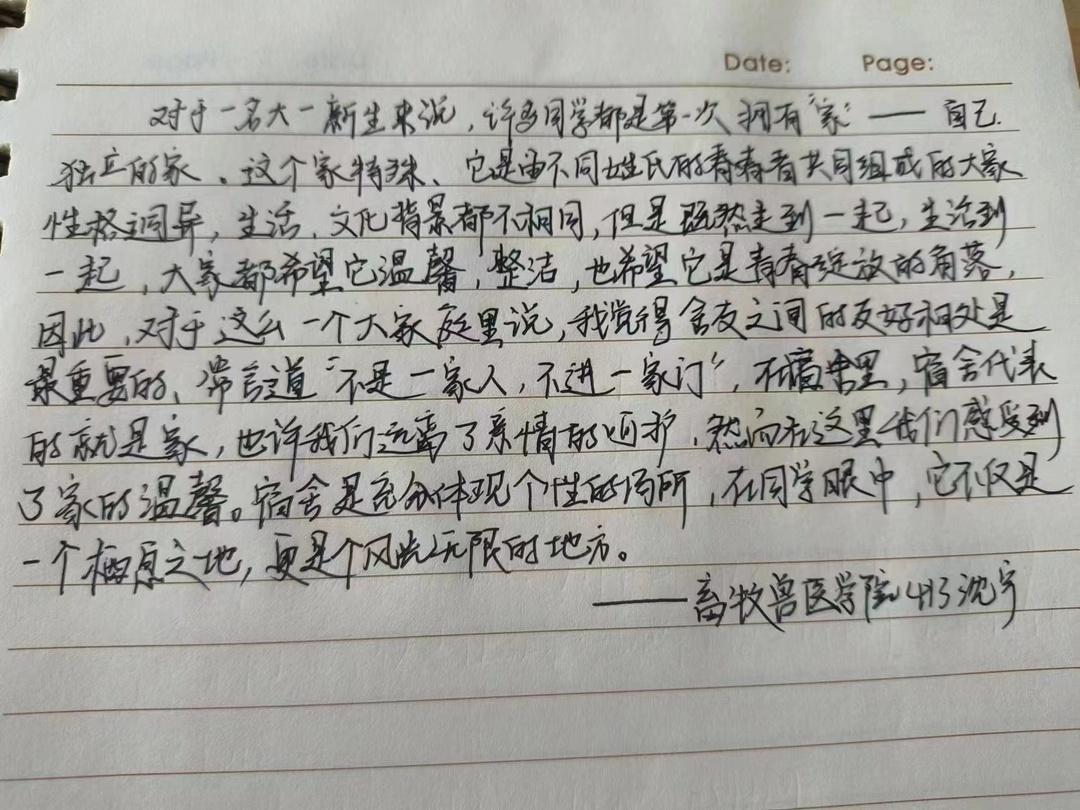 Date: Page:
对于一名大一新生来说，许多同学都是第一次拥有"家"——自己
独立的家、这个家特殊、它是由不同姓氏的青春者共同组成的大家
性格迥异，生活、文化背景都不相同，但是既然走到一起，生活到
一起，大家都希望它温馨，整洁，也希望它是青春绽放的角落，
因此，对于这么一个大家庭里说，我觉得舍友之间的友好相处是
最重要的、常言道"不是一家人，不进一家门"，在宿舍里，宿舍代表
的就是家，也许我们远离了亲情的呵护，然而在这里我们感受到
了家的温馨。宿舍是充分体现个性的场所，在同学眼中，它不仅是
一个栖息之地，更是个风光无限的地方。
——畜牧兽医学院413沈宇